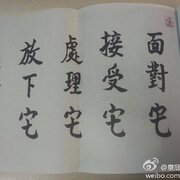 面對它
接受它
處理它
放下它
@皇冠
weibo.com/